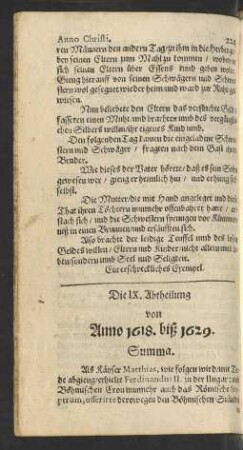 Anno Christi. 224
ren Männern den andern Tag zu ihm in die Herberge
bey seinen Eltern zum Mahl zu kommen / wobey er
sich seinen Eltern über Essens kund geben wolte.
Gieng hierauff von seinen Schwägern und Schwe-
stern wol gesegnet wieder heim und ward zur Ruhe ge-
wiesen.
Nun beliebete den Eltern das verfluchte Geld /
fasseten einen Muht und brachten umb des vergrabe-
Silbers willen ihr eigenes Kind umb.
Den folgenden Tag kamen die eingeladene Schwe-
stern und Schwäger / fragten nach dem Gast ihrem
Bruder.
Wie dieses der Vater hörete / daß es sein Sohn
gewesen wer / gieng er heimlich hin / und erhieng sich
selbst.
Die Mutter / die mit Hand angeleget und diese
That ihren Töchtern nunmehr offenbahret hatte / er-
stach sich / und die Schwestern sprengen vor Kümmer-
nuß in einen Brunnen und ersäufften sich.
Also brachte der leidige Teuffel umb des
Geldes willen / Eltern und Kinder nicht allein umb
den sondern umb Seel und Seligkeit.
Ein erschreckliches Exempel.
Die IX. Abtheilung
von
Anno 1618. biß 1629.
Summa.
Als Käyser Matthias, wie folgen wird / mit To-
de abgieng / erhielte Ferdinandus II. zu der Ungar- und
Böhmischen Cron nunmehr auch das Römische Im-
perium, offerirte derowegen den Böhmischen Ständen